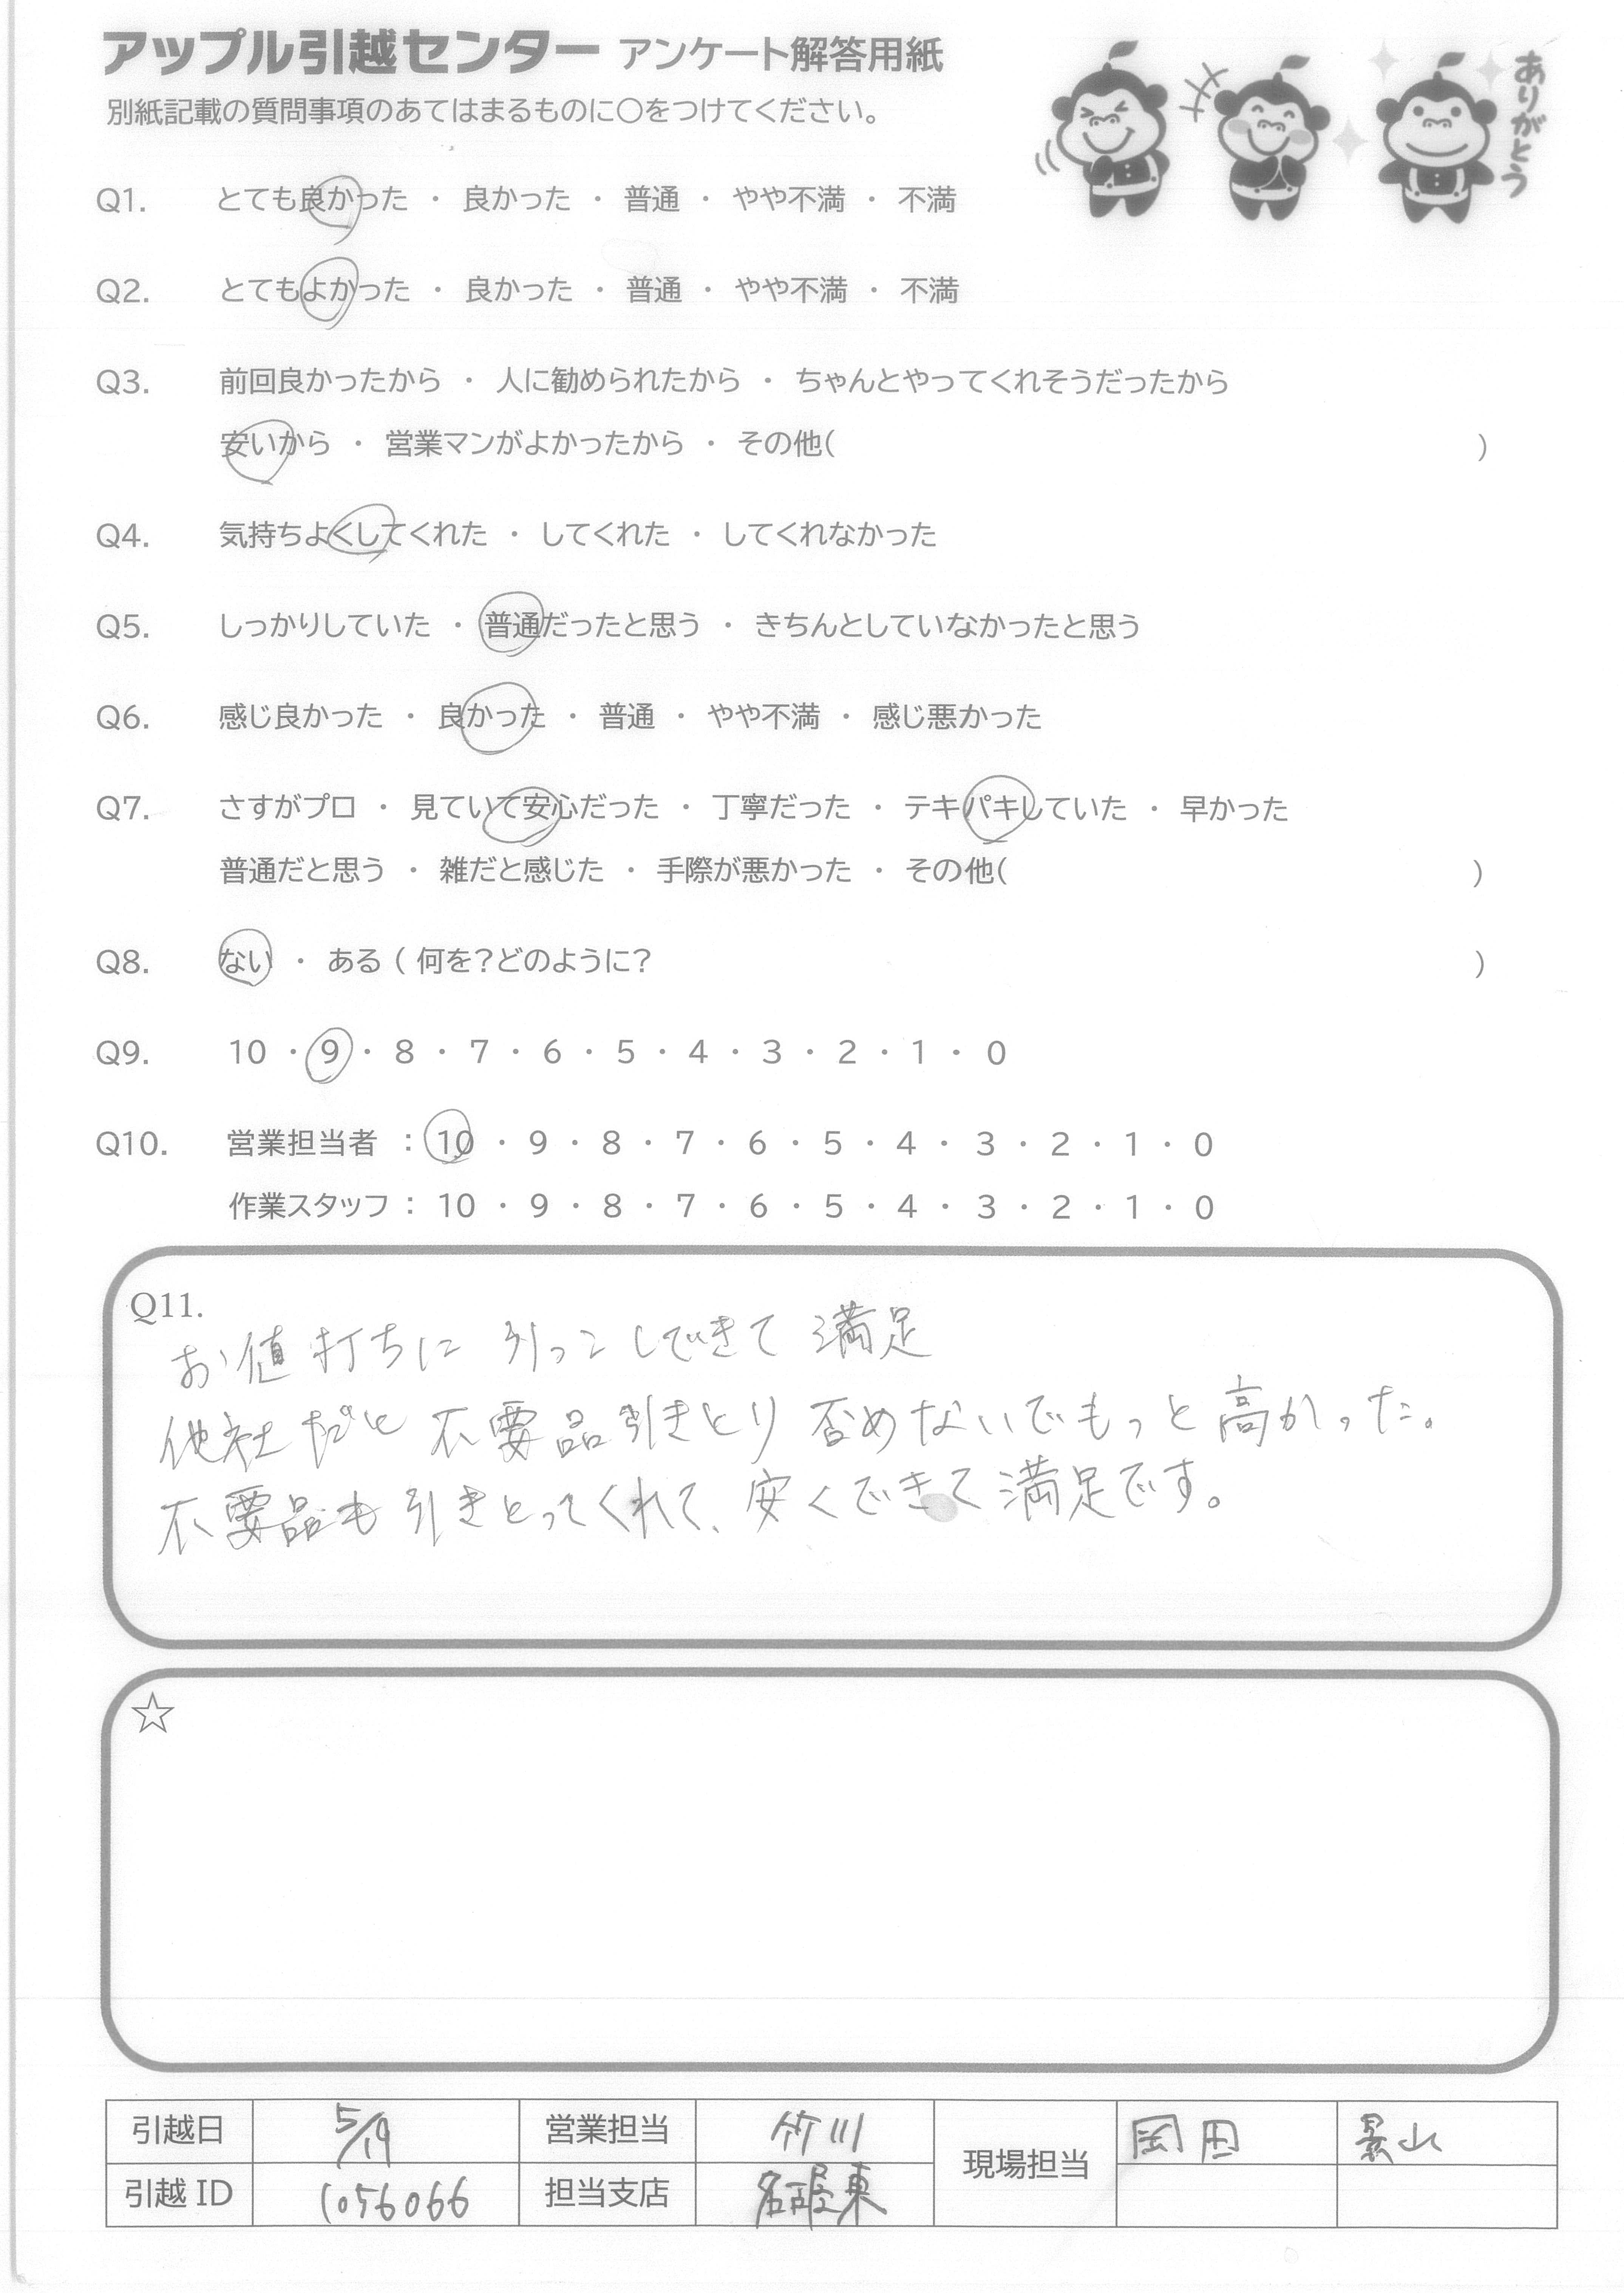 アップル引越センター アンケート解答用紙
別紙記載の質問事項のあてはまるものに○をつけてください。
ありがとう
Q1. とても良かった ・ 良かった ・ 普通 ・ やや不満 ・ 不満
Q2. とてもよかった ・ 良かった ・ 普通 ・ やや不満 ・ 不満
Q3. 前回良かったから ・ 人に勧められたから ・ ちゃんとやってくれそうだったから
安いから ・ 営業マンがよかったから ・ その他( )
Q4. 気持ちよくしてくれた ・ してくれた ・ してくれなかった
Q5. しっかりしていた ・ 普通だったと思う ・ きちんとしていなかったと思う
Q6. 感じ良かった ・ 良かった ・ 普通 ・ やや不満 ・ 感じ悪かった
Q7. さすがプロ ・ 見ていて安心だった ・ 丁寧だった ・ テキパキしていた ・ 早かった
普通だと思う ・ 雑だと感じた ・ 手際が悪かった ・ その他( )
Q8. ない ・ ある ( 何を?どのように? )
Q9. 10 ・ 9 ・ 8 ・ 7 ・ 6 ・ 5 ・ 4 ・ 3 ・ 2 ・ 1 ・ 0
Q10. 営業担当者 : 10 ・ 9 ・ 8 ・ 7 ・ 6 ・ 5 ・ 4 ・ 3 ・ 2 ・ 1 ・ 0
作業スタッフ : 10 ・ 9 ・ 8 ・ 7 ・ 6 ・ 5 ・ 4 ・ 3 ・ 2 ・ 1 ・ 0
Q11.
お値打ちに引っこしできて満足
他社だと不要品引きとり含めないでもっと高かった。
不要品も引きとってくれて、安くできて満足です。
☆
引越日 5/19 営業担当 竹川 現場担当 岡田 景山
引越ID 1056066 担当支店 名古屋東